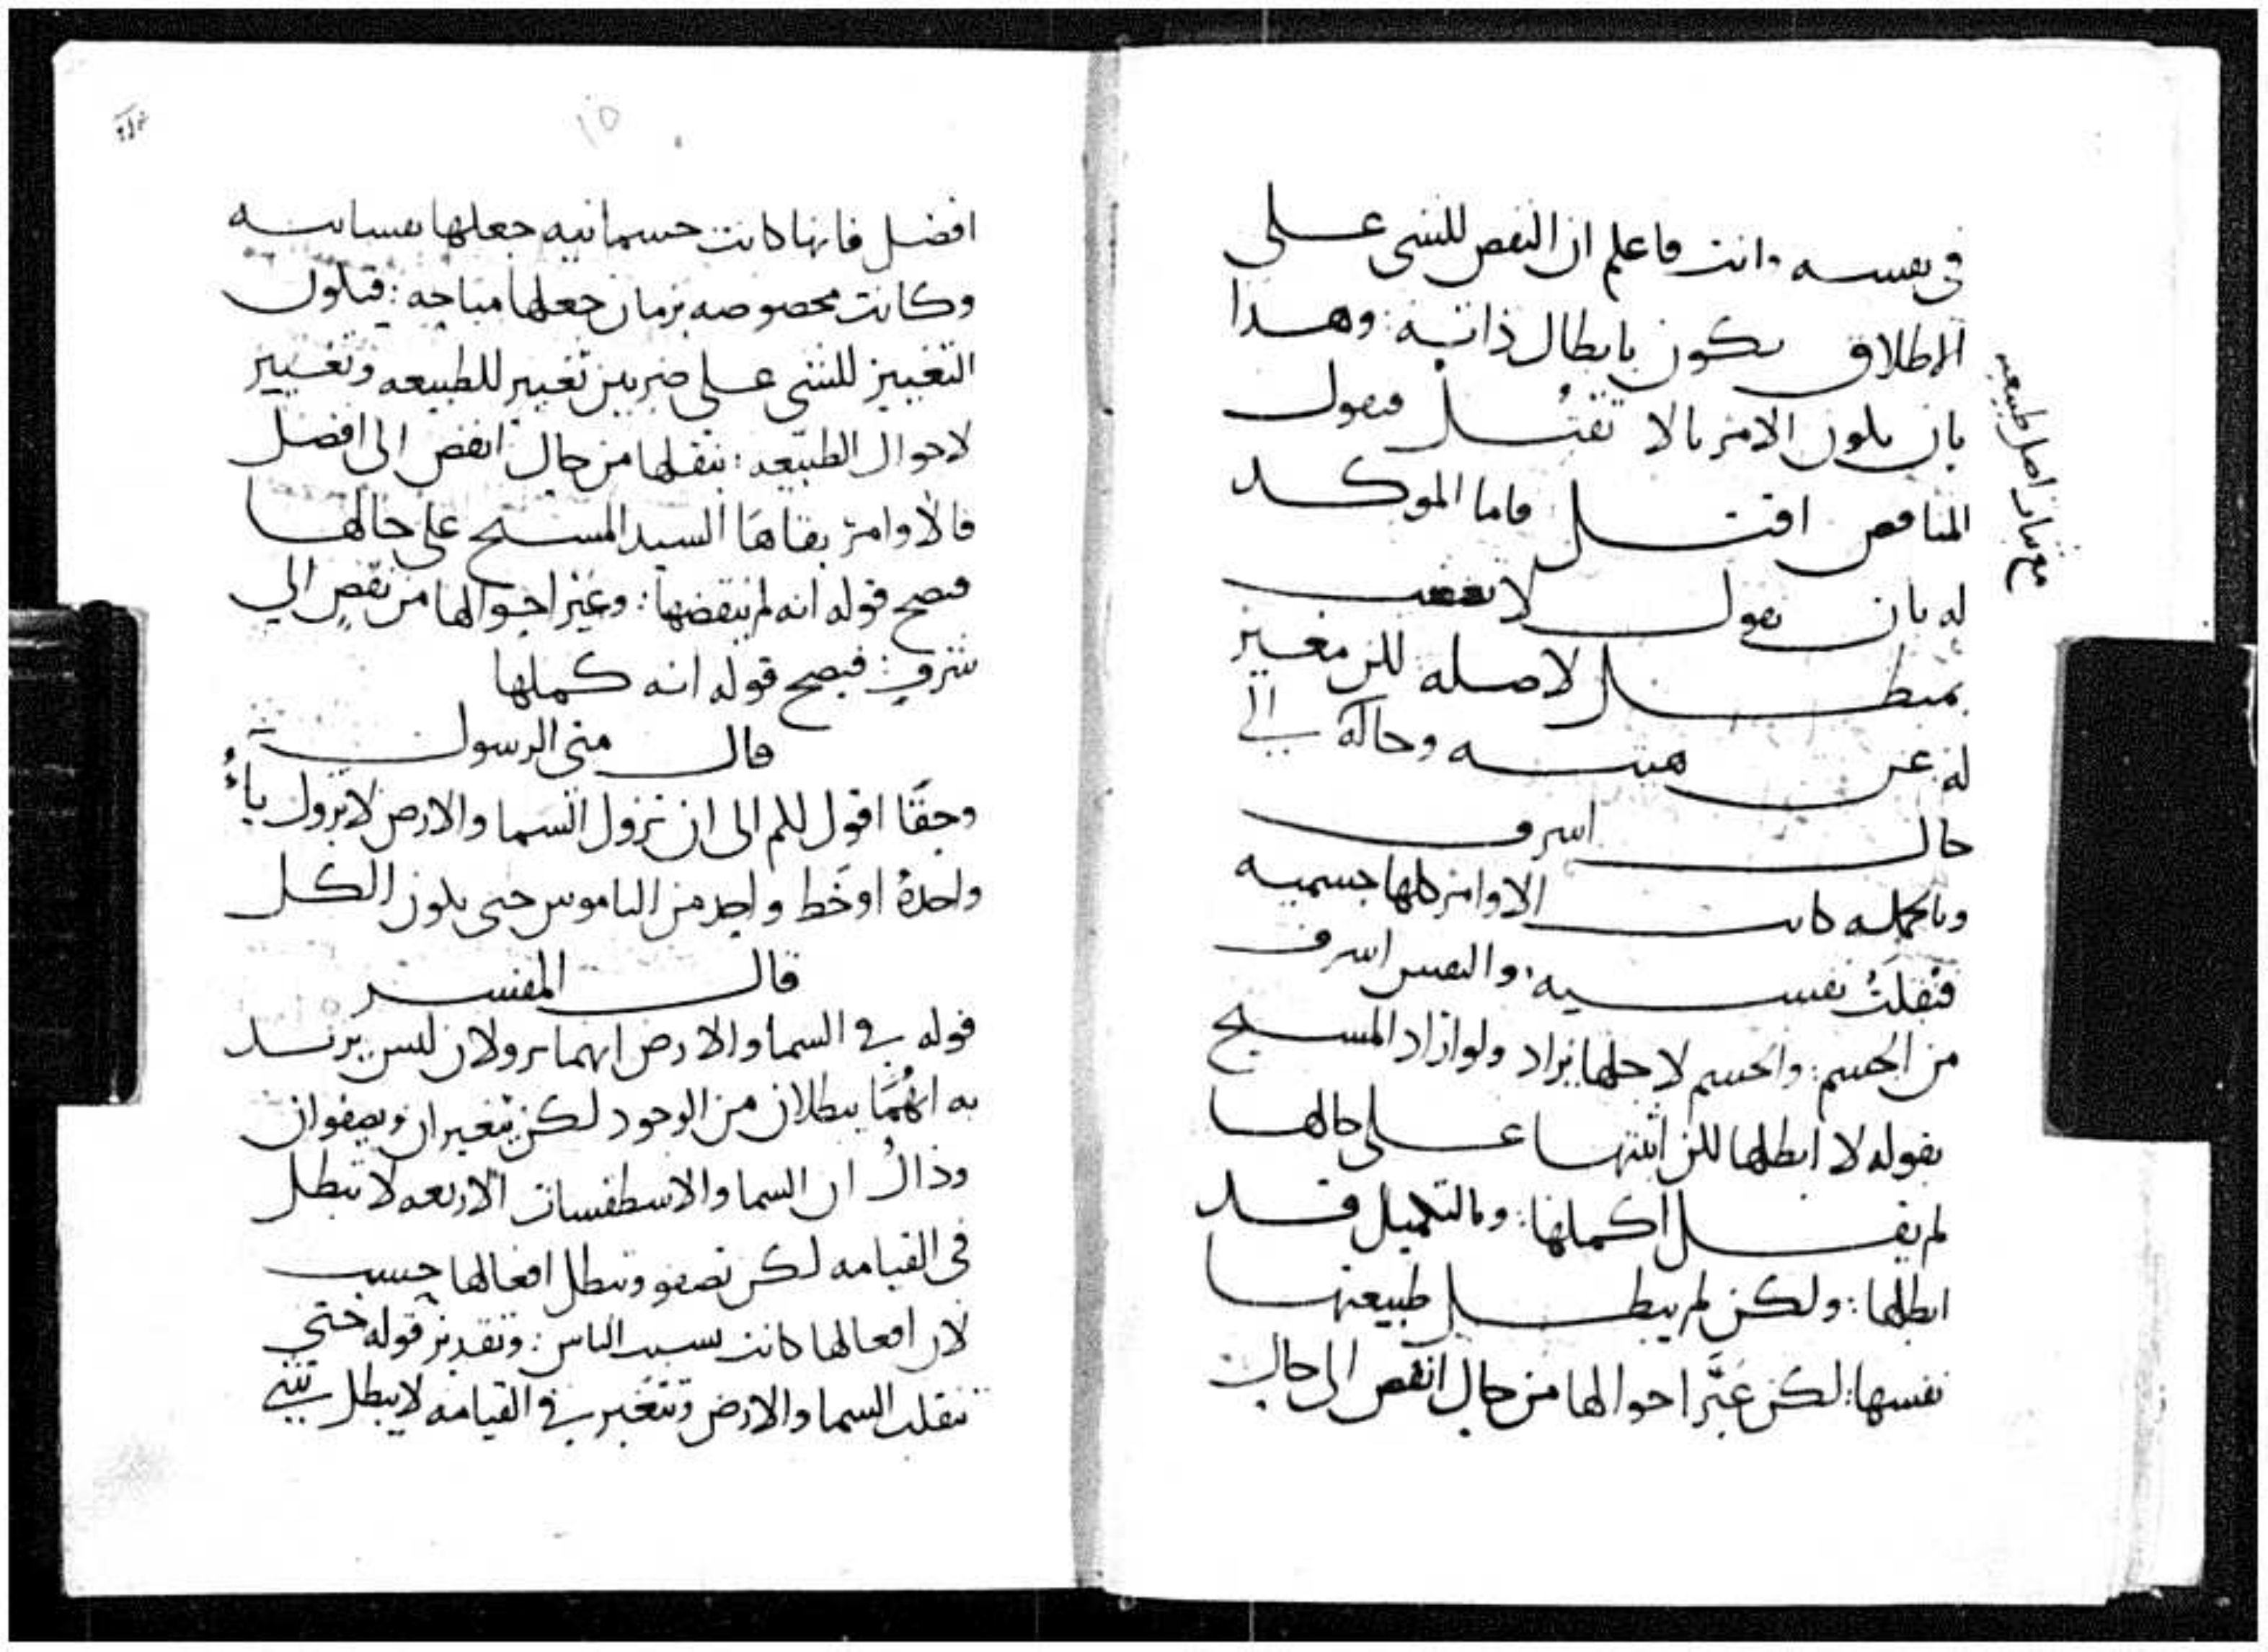 في نفسه وانت فاعلم ان النقص للشي على
الاطلاق يكون بابطال ذاته : وهذا
بان يكون الامر بالا تقتل فيقول
المناقص اقتل فاما الموكد
له بان يقول لا تغضب
بمبطل لاصله لكن مغير
له عن هيئته وحاله الى
حال اشرف
وبالجمله كانت الاوامر كلها جسميه
فنقلت نفسيه : والنفس اشرف
من الجسم : والجسم لاجلها يراد ولو اراد المسيح
بقوله لا ابطلها لكن اثبتها على حالها
لم يقل اكملها : وبالتكميل قد
ابطلها : ولكن لم يبطل طبيعتها
نفسها : لكن غيّر احوالها من حال انقص الى حال
مع بيان اصل طبيعته
١٥
افضل فانها كانت جسمانيه جعلها نفسانيه
وكانت مخصوصه بزمان جعلها مباحه : فيكون
التغيير للشي على ضربين تغيير للطبيعه وتغيير
لاحوال الطبيعه : بنقلها من حال انقص الى افضل
فالاوامر بقاها السيد المسيح على حالها
فيصح قوله انه لم ينقضها : وغير احوالها من نقص الى
شرف : فيصح قوله انه كملها
قال متى الرسول
وحقا اقول لكم الى ان تزول السما والارض لا تزول ياء
واحدة او خط واحد من الناموس حتى يكون الكل
قال المفسر
قوله في السما والارض انهما يزولان ليس يريد
به انهما يبطلان من الوجود لكن يتغيران ويصفوان
وذاك ان السما والاسطقسات الاربعه لا تبطل
في القيامه لكن تصفو وتبطل افعالها حسب
لان افعالها كانت بسبب الناس : وتقدير قوله حتى
تنقلب السما والارض وتتغير في القيامه لا يبطل شي